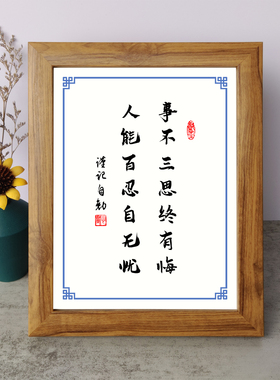 事不三思终有悔
人能百忍自无忧
谨记自勉